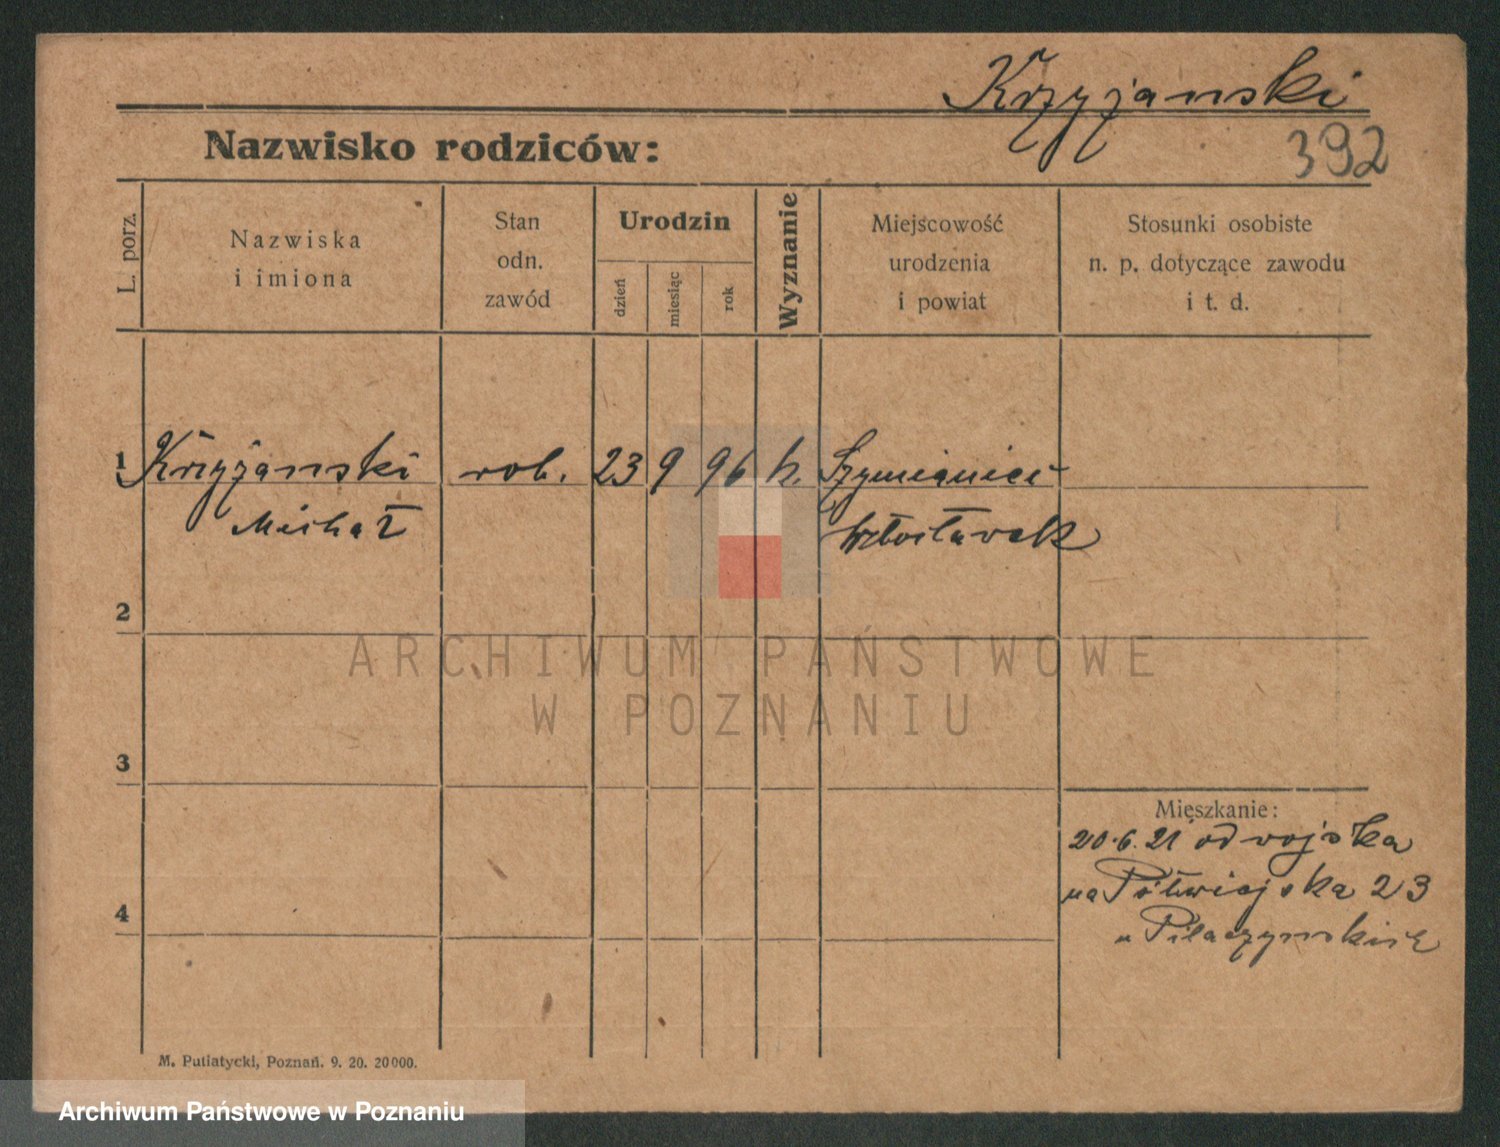 Krzyżanski
392
Nazwisko rodziców:
L. porz.
Nazwiska
i imiona
Stan
odn.
zawód
Urodzin
dzień
miesiąc
rok
Wyznanie
Miejscowość
urodzenia
i powiat
Stosunki osobiste
n. p. dotyczące zawodu
i t. d.
1 Krzyżanski rob. 23 9 96 k.
Michał Włocławek
2
ARCHIWUM PAŃSTWOWE
W POZNANIU
3
Mieszkanie:
20.6.21 od wojska
na Półwiejska 23
u
4
M. Putiatycki, Poznań. 9. 20. 20000.
Archiwum Państwowe w Poznaniu